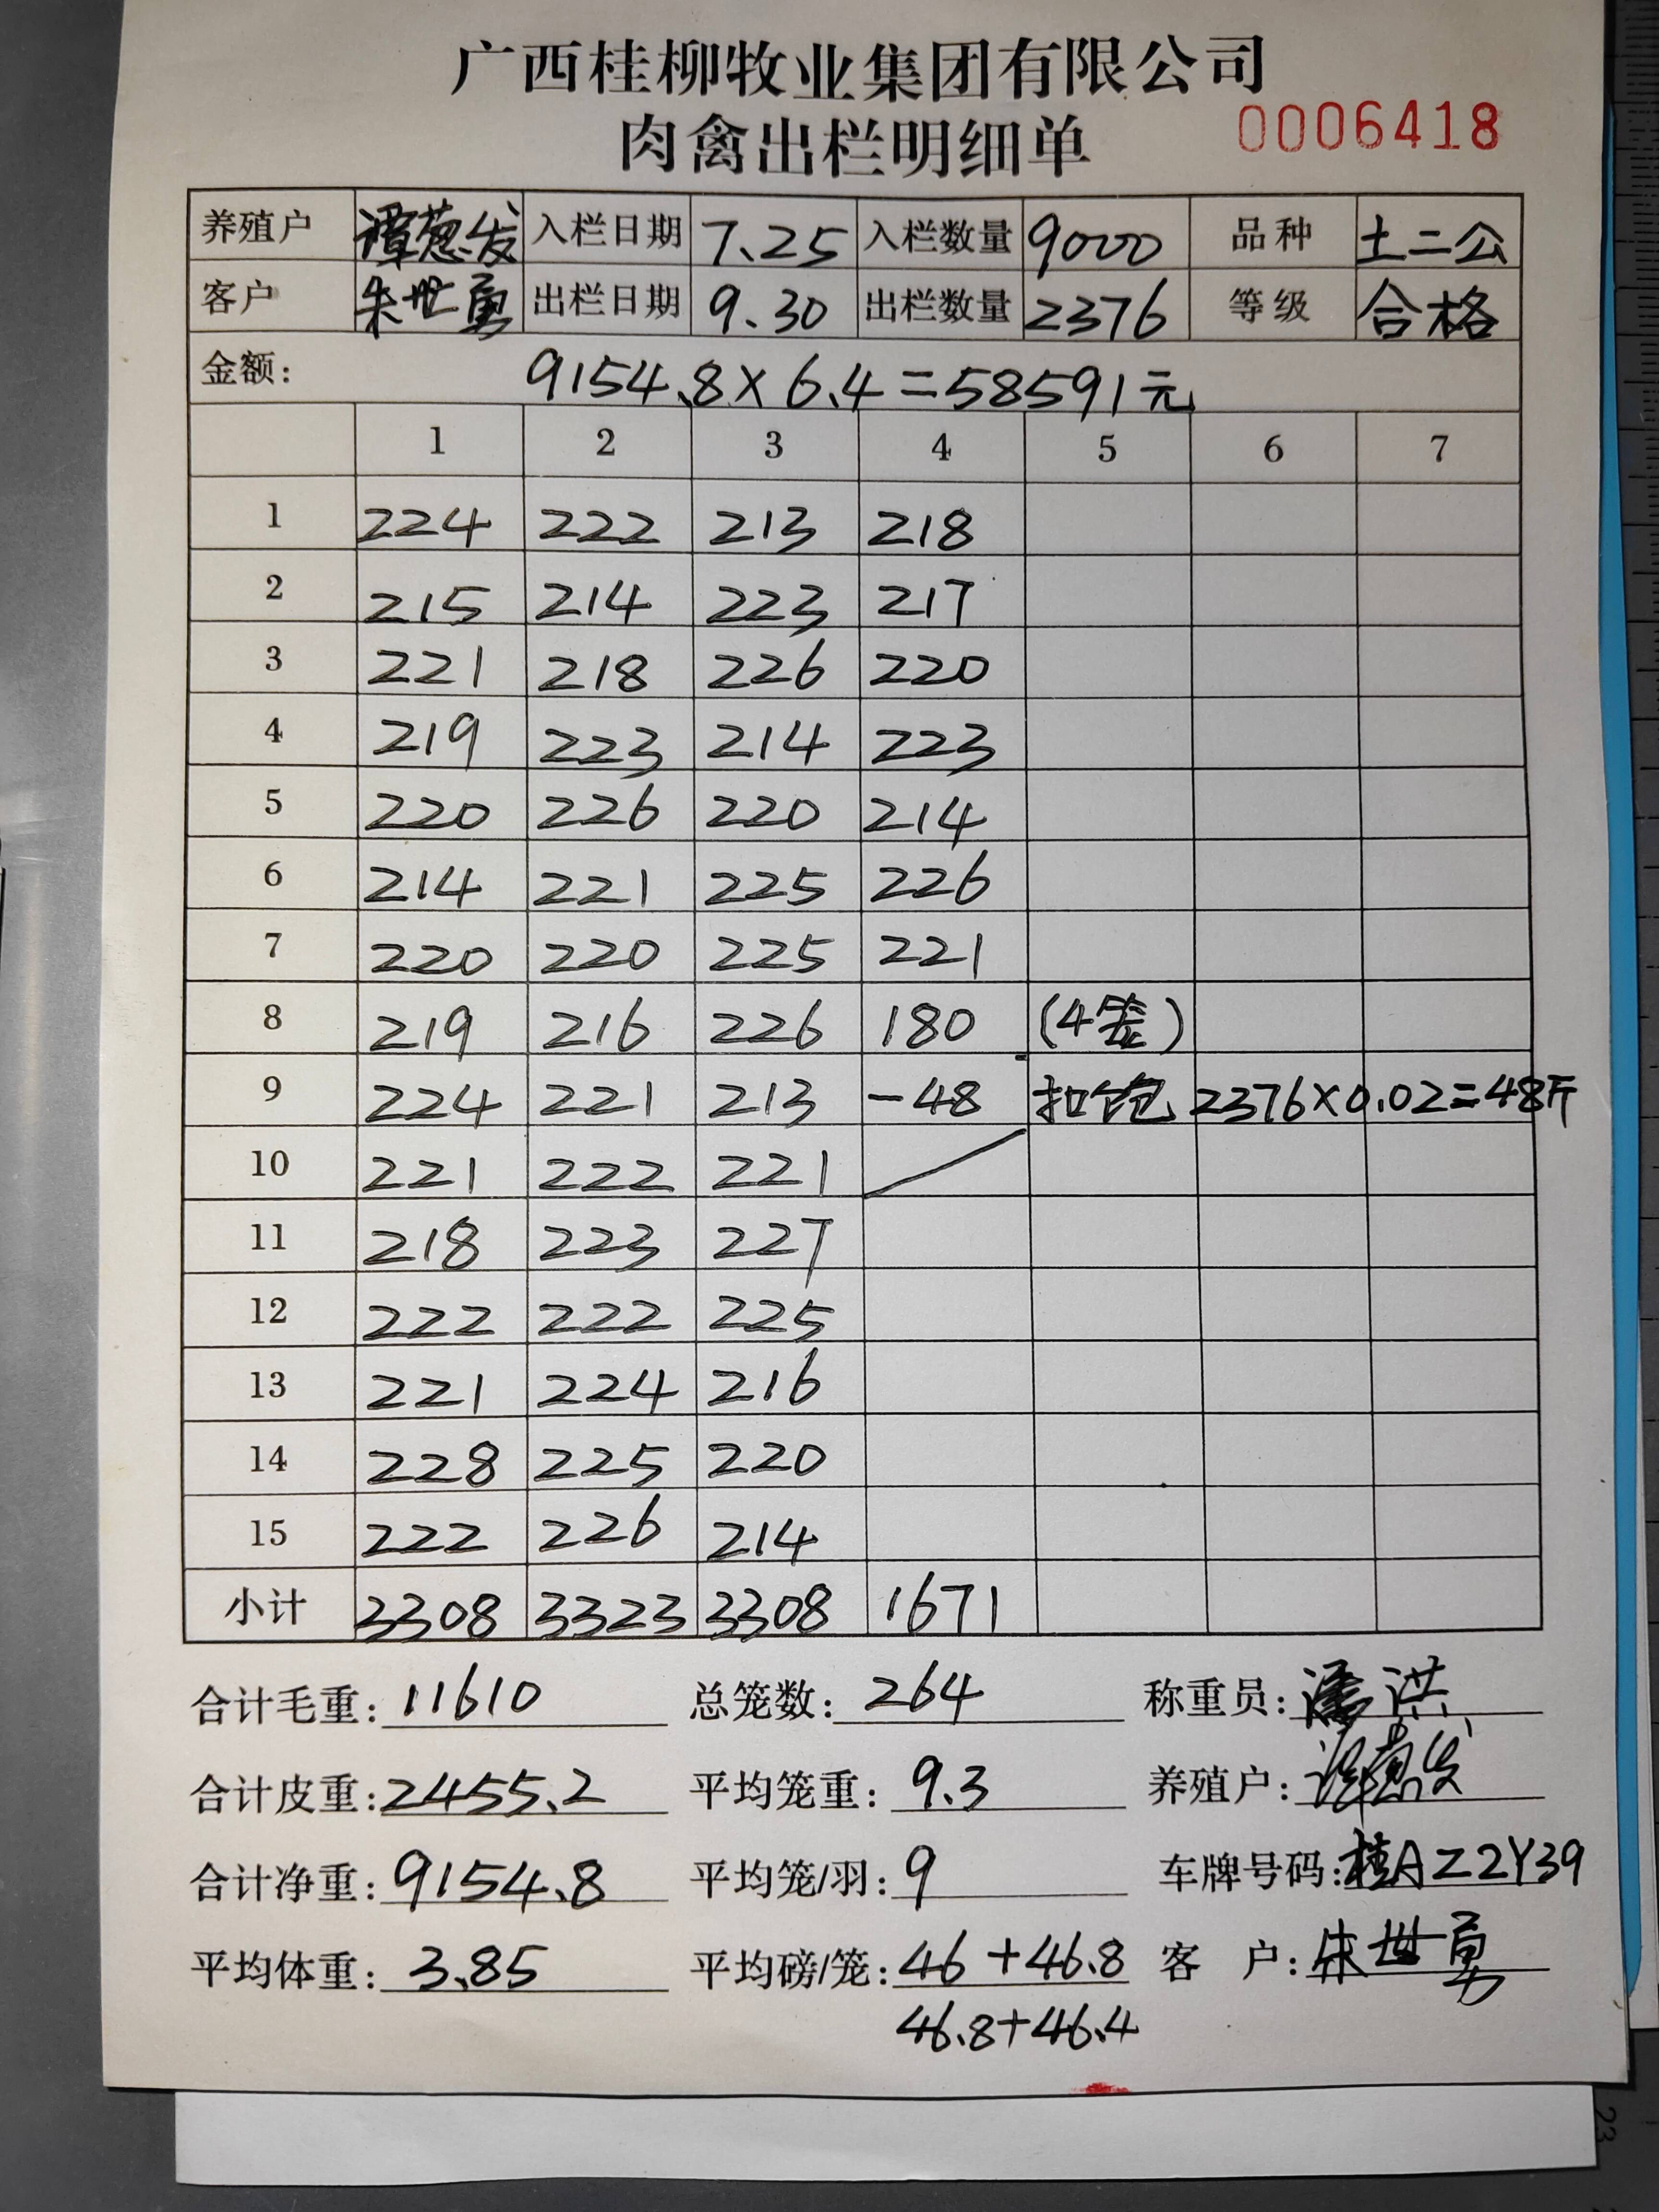 广西桂柳牧业集团有限公司
肉禽出栏明细单 0006418
养殖户 谭葱发 入栏日期 7.25 入栏数量 9000 品种 土二公
客户 朱世勇 出栏日期 9.30 出栏数量 2376 等级 合格
金额: 9154.8×6.4=58591元
1 2 3 4 5 6 7
1 224 222 213 218
2 215 214 223 217
3 221 218 226 220
4 219 223 214 223
5 220 226 220 214
6 214 221 225 226
7 220 220 225 221
8 219 216 226 180 (4笼)
9 224 221 213 -48 扣饱 2376×0.02=48斤
10 221 222 221
11 218 223 227
12 222 222 225
13 221 224 216
14 228 225 220
15 222 226 214
小计 3308 3323 3308 1671
合计毛重: 11610 总笼数: 264 称重员: 潘洪
合计皮重: 2455.2 平均笼重: 9.3 养殖户:
合计净重: 9154.8 平均笼/羽: 9 车牌号码: 桂AZ2Y39
平均体重: 3.85 平均磅/笼: 46+46.8 客 户: 朱世勇
46.8+46.4
23